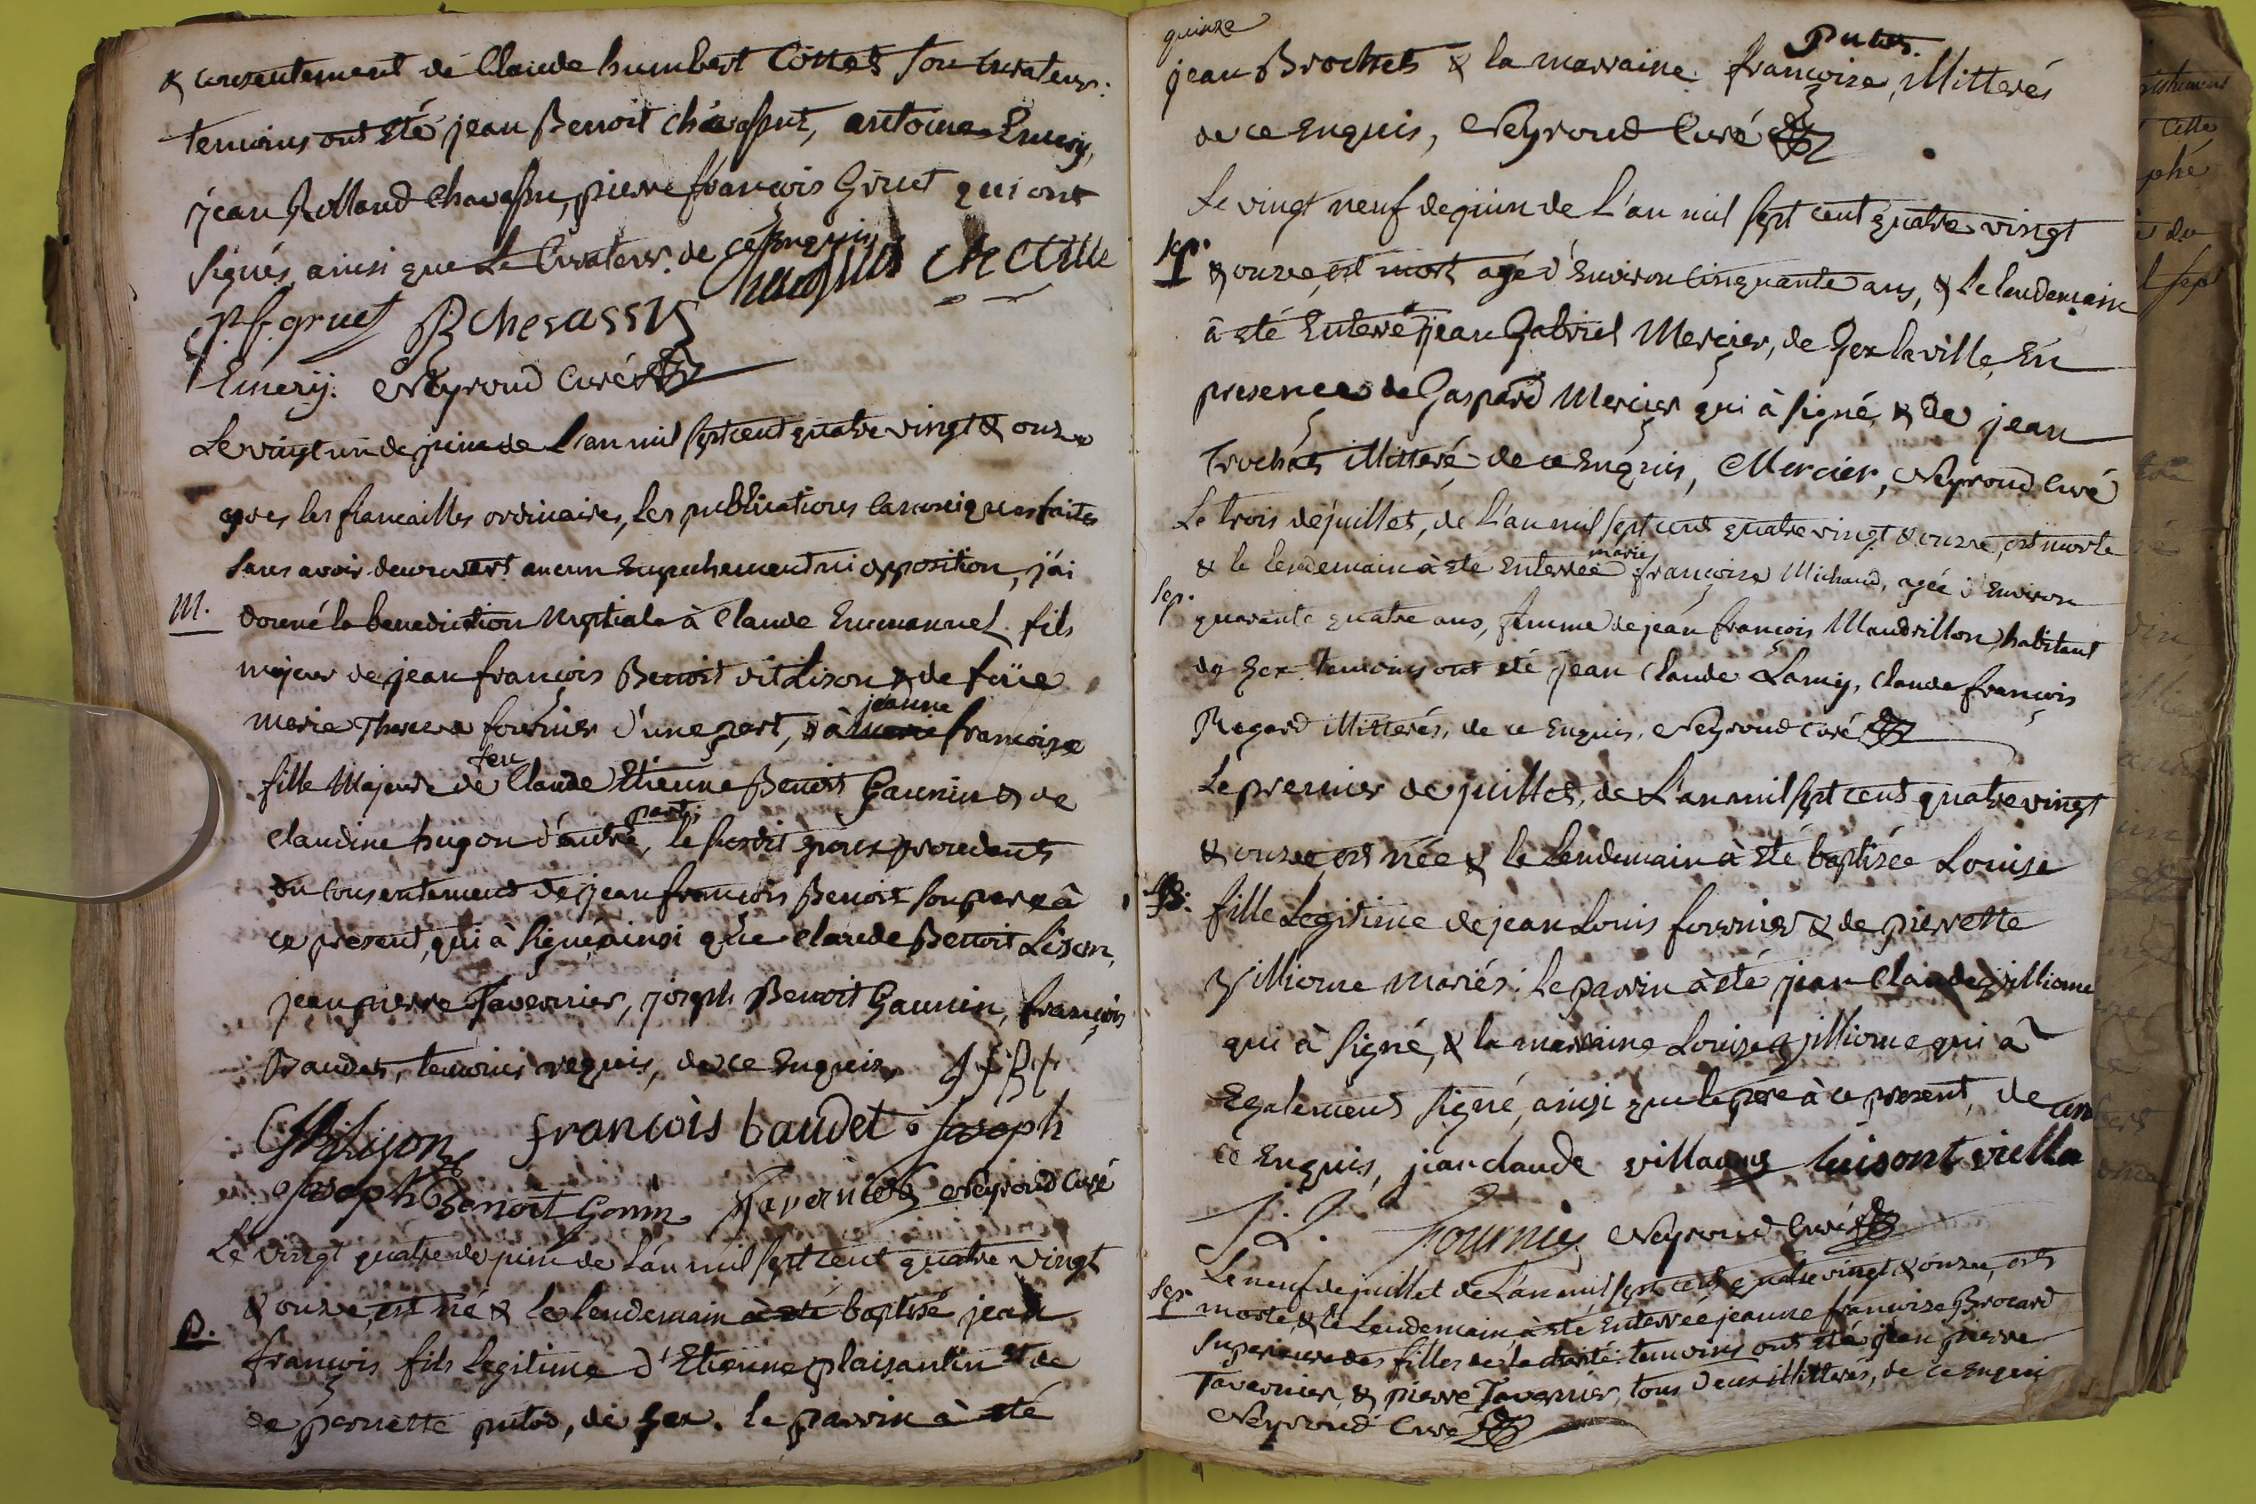 & consentement de Claude humbert Cottet son curateur.
temoins ont été jean Benoit chavassus, antoine Emery,
jean Rolland Chavassu, pierre françois Gruet qui ont
signés, ainsi que Le Curateur. de ce Enquis
p. f. gruet JB chevassus
Emery. Neyroud Curé
Le vingt un de juin de L'an mil sept cent quatre vingt & onze
apres les fiancailles ordinaires, les publications canoniques faites
sans avoir decouvert aucun Empechement ni opposition, j'ai
M.
donné la benediction Nuptiale à Claude Emmanuel fils
majeur de jean françois Benoit dit Lison & de füe
jeanne
marie Therese fournier d'une part, & à marie françoise
feu
fille Majeure de Claude Etienne Benoit Gaunin & de
part;
Claudine hugon d'autre, le susdit epoux procedant
du Consentement de jean françois Benoit son pere à
ce present, qui à signé ainsi que Claude Benoit Lison,
jean pierre Tavernier, joseph Benoit Gaunin, françois
Baudet, temoins requis, de ce Enquis, J f B L
Lison françois baudet joseph
joseph Benoit Gonin Tavernier Neyroud Curé
Le vingt quatre de juin de L'an mil sept cent quatre vingt
& onze, est né & le lendemain à été baptisé jean
B.
françois fils legitime d'Etienne plaisantin & de
de pernette putod, de Gex. le parrin à été
quinze
Putod.
jean Brochet & la marraine françoise, illitterés
de ce Enquis, Neyroud Curé
Le vingt neuf de juin de L'an mil sept cent quatre vingt
sep.
& onze, est mort agé d'Environ Cinquante ans, & le lendemain
à été Enterré jean Gabriel Mercier, de Gex la ville, En
presence de Gaspard Mercier qui à signé & de jean
Trochet illitteré de ce Enquis, Mercier, Neyroud Curé
Le trois de juillet, de L'an mil sept cent quatre vingt & onze, est morte
marie
& le lendemain à été Enterrée françoise Michaud, agée d'Environ
sep.
quarante quatre ans, femme de jean françois Mandrillon, habitant
de Gex. temoins ont été jean Claude Lamy, Claude françois
Regard illitterés, de ce Enquis, Neyroud Curé
Le premier de juillet, de L'an mil sept cent quatre vingt
& onze, est née & le lendemain à été baptisée Louise
B.
fille Legitime de jean Louis fournier & de pierrette
Villiome mariés. Le parrin à été jean Claude Villiome
qui à signé, & la marraine Louise Villiome qui à
Egalement signé, ainsi que le pere à ce present, de
ce Enquis, jean claude villaume
J. L. Fournier Neyroud Curé
Le neuf de juillet de L'an mil sept cent quatre vingt & onze, est
sep.
morte, & le Lendemain à été Enterrée jeanne françoise Brocard
Superieure des filles de la charité. temoins ont été jean pierre
Tavernier, & pierre Tavernier, tous deux illitterés, de ce Enquis
Neyroud Curé